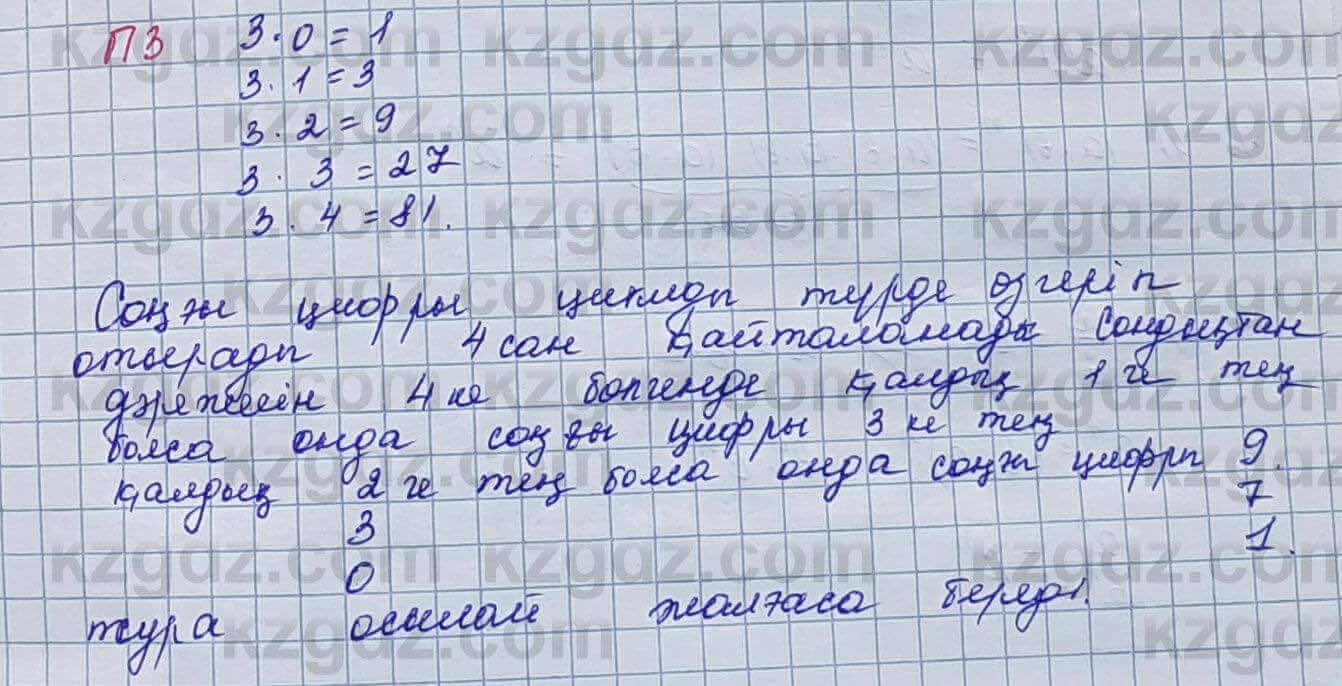 ПЗ 3 · 0 = 1
3 · 1 = 3
3 · 2 = 9
3 · 3 = 27
3 · 4 = 81.
Соңғы цифры циклді түрде өзгеріп
отырады 4 сан қайталанады Сондықтан
дәрежесін 4 ке бөлгенде қалдық 1 ге тең
болса онда соңғы цифры 3 ке тең
қалдық 2 ге тең болса онда соңғы цифры 9.
3 7
0 1.
тура осылай жалғаса береді.